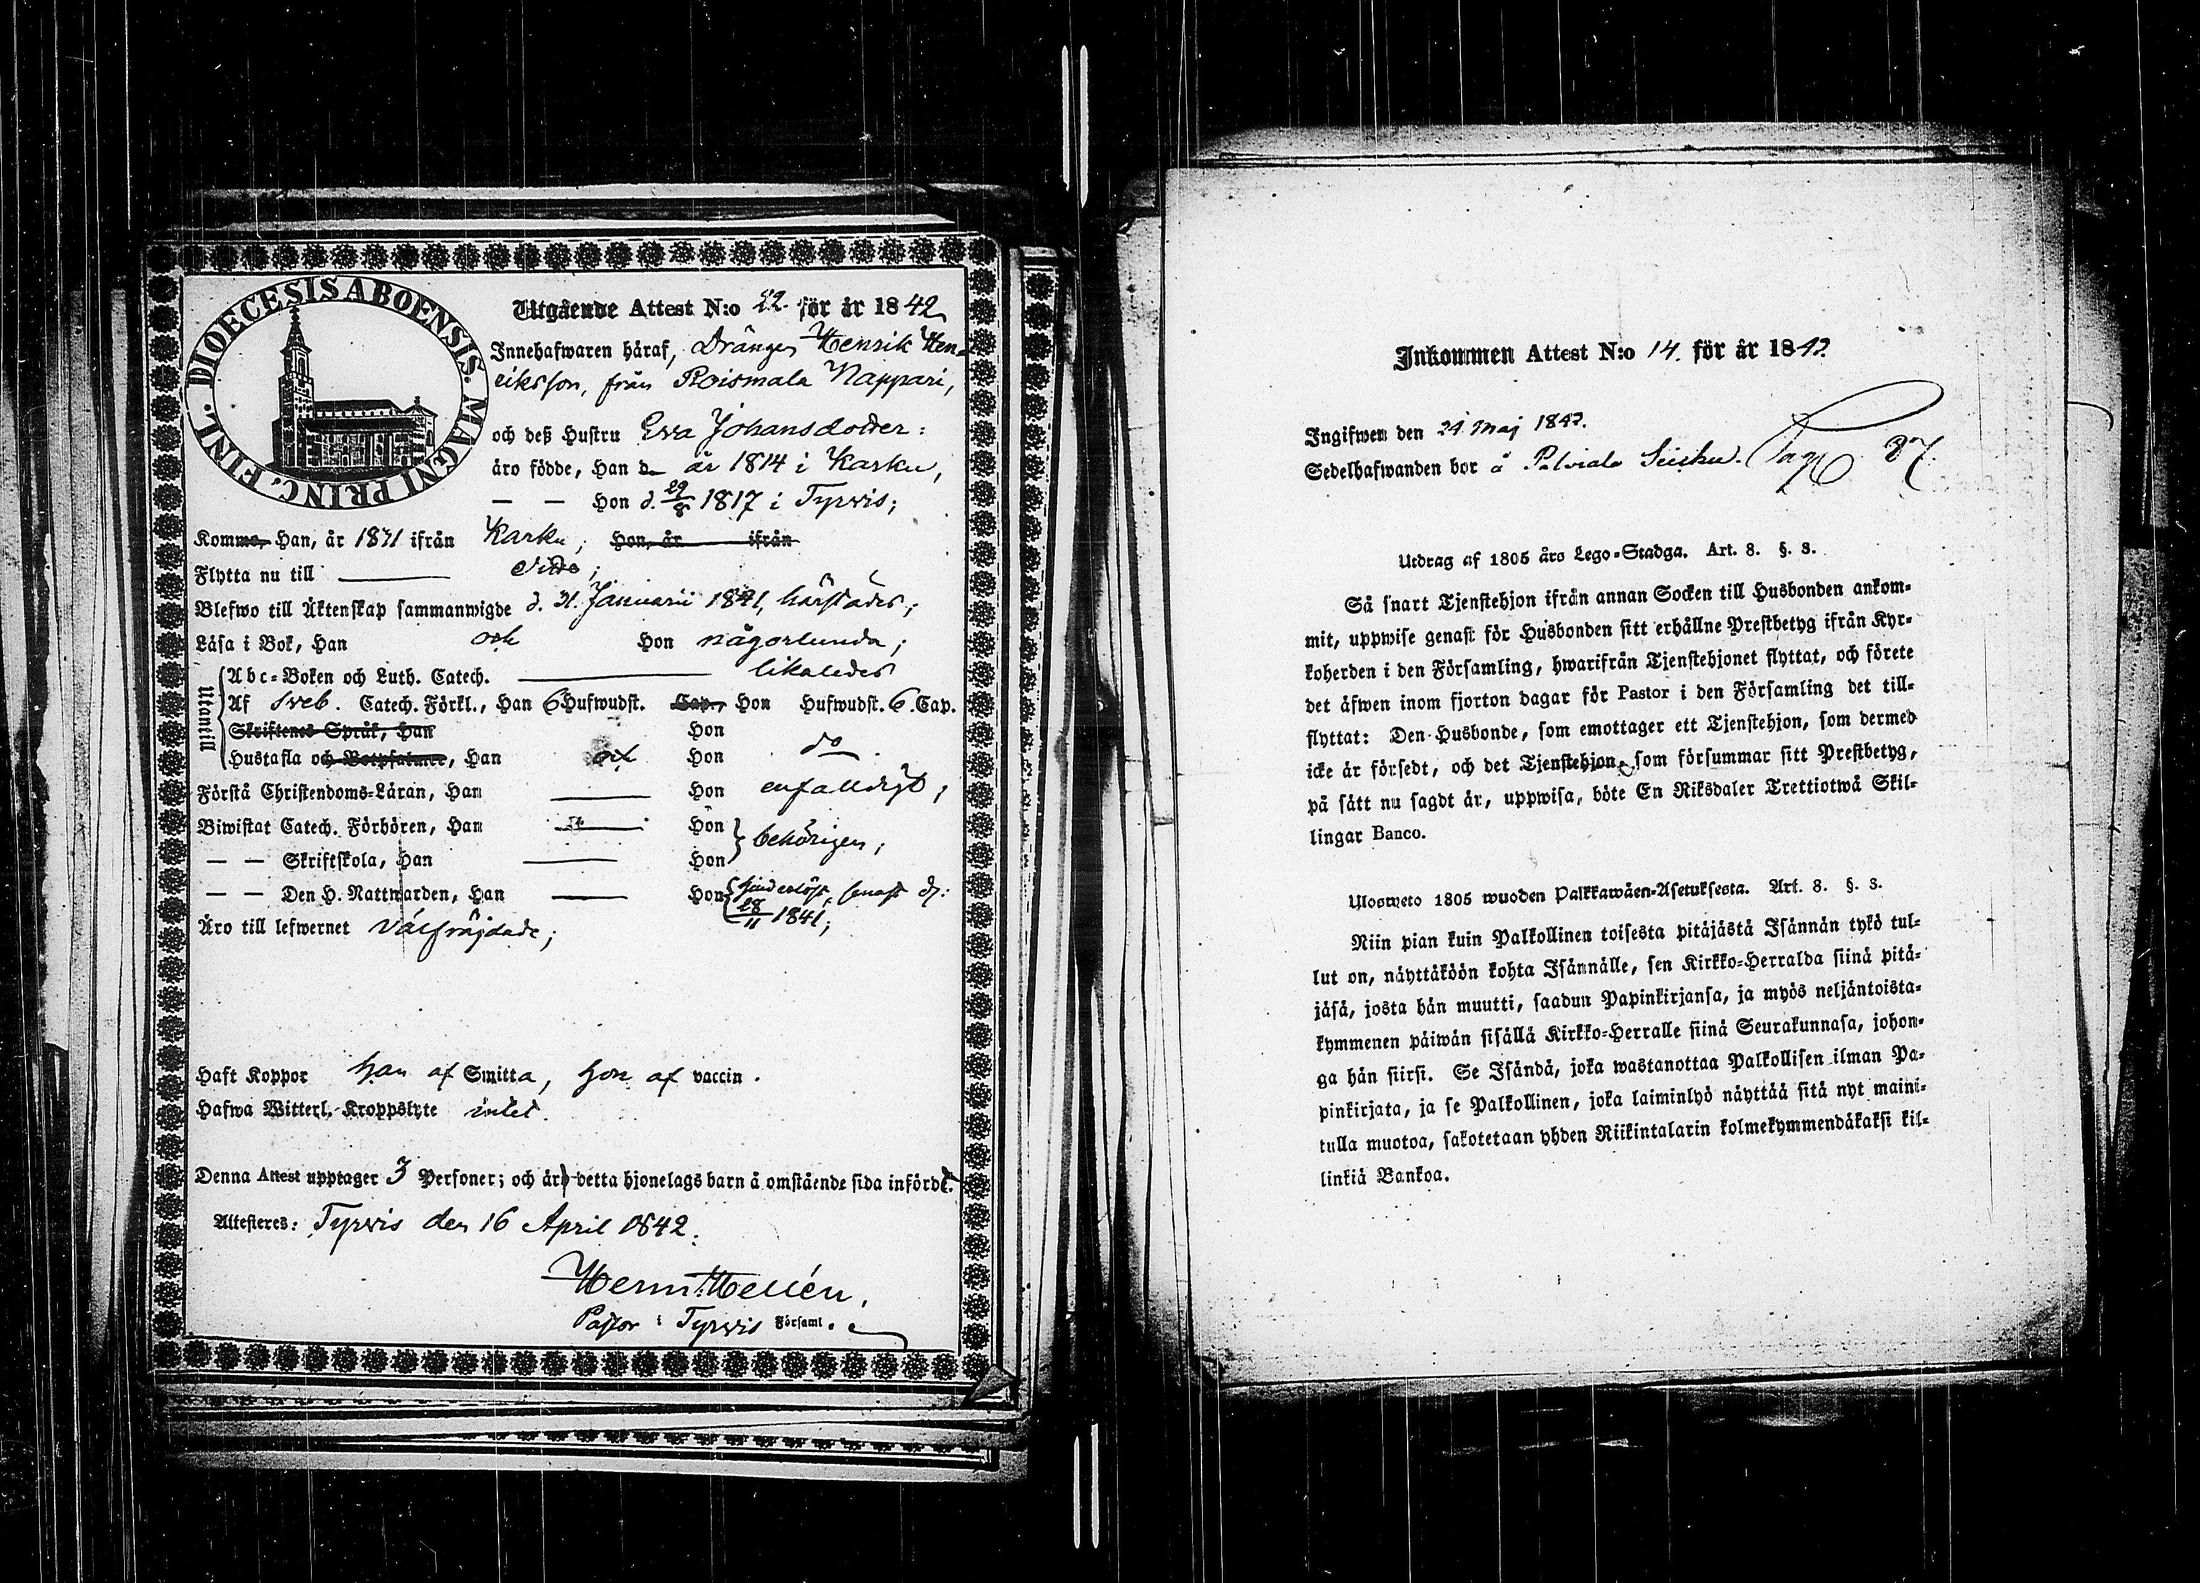 DIOECESIS ABOENSIS. MAGNI PRINC. FINL.
Utgående Attest N:o 22. för år 1842
Innehafwaren häraf, Drängen Henrik Hen-
riksson, från Roismala Nappari,
och deß Hustru Eva Johansdotter:
äro födde, Han d — år 1814 i Karku,
— — Hon d. 29/8 1817 i Tyrvis;
Komme, Han, år 1841 ifrån Karku; Hon, år ifrån
Flytta nu till dito;
Blefwo till Äktenskap sammanwigde d. 31. Januarii 1841, härstädes;
Läsa i Bok, Han och Hon någorlunda;
Utantill
Abc-Boken och Luth. Catech. likaledes
Af Sveb. Catech. Förkl., Han 6 Hufwudst. Cap., Hon Hufwudst. 6. Cap.
Skriftenes Språk, Han Hon
Hustafla och Botpsalmer, Han och Hon do
Förstå Christendoms-Läran, Han Hon enfaldigt;
Biwistat Catech. Förhören, Han Hon
behörigen;
— — Skriftskola, Han Hon
— — Den H. Nattwarden, Han Hon hinderlöst, senast d:
28/11 1841;
Äro till lefwernet välfräjdade;
Haft Koppor Han af Smitta, Hon af vaccin.
Hafwa Witterl. Kroppslyte intet.
Denna Attest upptager 3 Personer; och äro detta hjonelags barn å omstående sida införde.
Attesteres: Tyrvis den 16 April 1842.
Herm. Hellén,
Pastor i Tyrvis Församl.
Inkommen Attest N:o 14. för år 1842.
Ingifwen den 24 Maj 1842.
Sedelhafwanden bor å Palviala Pag 87.
Utdrag af 1805 års Lego-Stadga. Art. 8. §. 3.
Så snart Tjenstehjon ifrån annan Socken till Husbonden ankom-
mit, uppwise genast för Husbonden sitt erhållne Prestbetyg ifrån Kyr-
koherden i den Församling, hwarifrån Tjenstehjonet flyttat, och förete
det äfwen inom fjorton dagar för Pastor i den Församling det till-
flyttat: Den Husbonde, som emottager ett Tjenstehjon, som dermed
icke är försedt, och det Tjenstehjon, som försummar sitt Prestbetyg,
på sätt nu sagdt är, uppwisa, böte En Riksdaler Trettiotwå Skil-
lingar Banco.
Ulosweto 1805 wuoden Palkkawäen-Asetuksesta. Art. 8. §. 3.
Niin pian kuin Palkollinen toisesta pitäjästä Isännän tykö tul-
lut on, näyttäköön kohta Isännälle, sen Kirkko-Herralda siinä pitä-
jäsä, josta hän muutti, saadun Papinkirjansa, ja myös neljäntoista-
kymmenen päiwän sisällä Kirkko-Herralle siinä Seurakunnasa, johon-
ga hän siirsi. Se Isändä, joka wastanottaa Palkollisen ilman Pa-
pinkirjata, ja se Palkollinen, joka laiminlyö näyttää sitä nyt maini-
tulla muotoa, sakotetaan yhden Riikintalarin kolmekymmendäkaksi kil-
linkiä Bankoa.